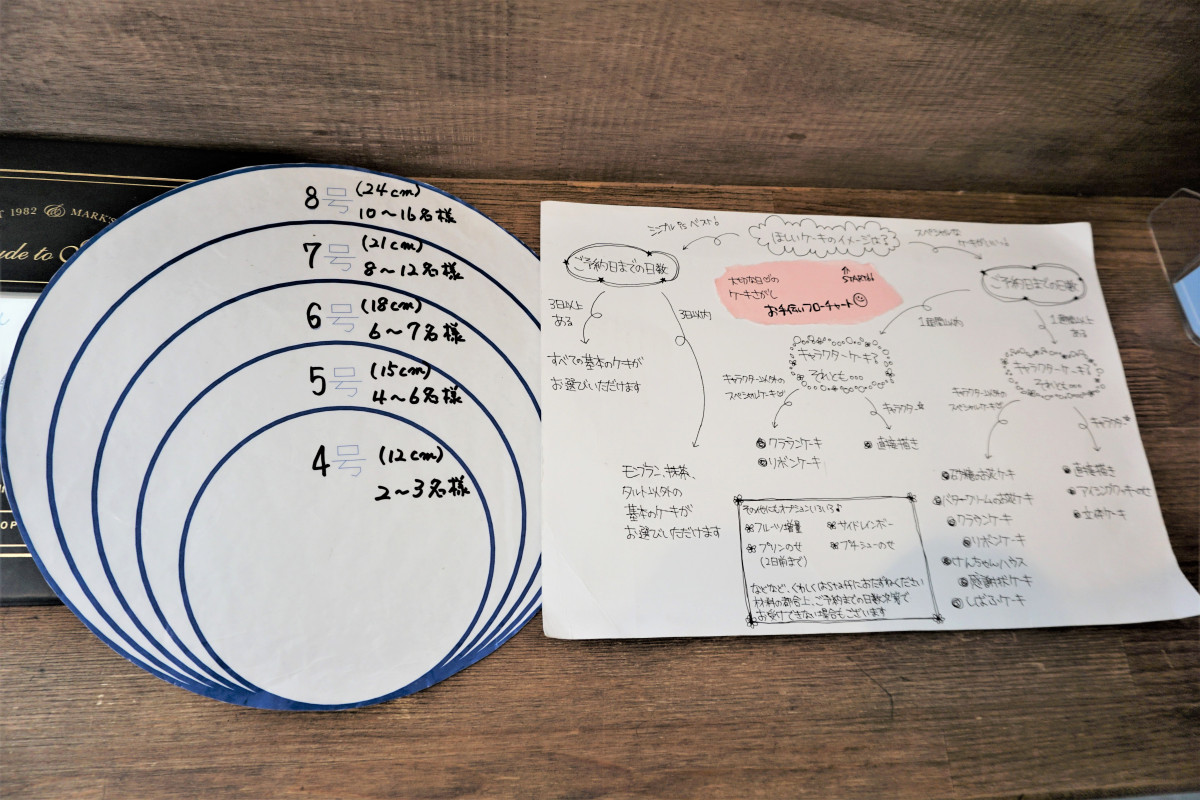 1982
MARK'S
8号 (24cm)
10〜16名様
7号 (21cm)
8〜12名様
6号 (18cm)
6〜7名様
5号 (15cm)
4〜6名様
4号 (12cm)
2〜3名様
ほしいケーキのイメージは?
シンプルがベスト!
スペシャルな
ケーキがいい
START
大切な日の
ケーキさがし
お手伝いフローチャート
ご予約日までの日数
3日以上
ある
3日以内
すべての基本のケーキが
お選びいただけます
モンブラン、抹茶、
タルト以外の
基本のケーキが
お選びいただけます
ご予約日までの日数
1週間以内
1週間以上
ある
キャラクターケーキ?
それとも…
キャラクター以外の
スペシャルケーキ
キャラクター
クラウンケーキ
リボンケーキ
直接描き
キャラクターケーキ?
それとも…
キャラクター以外の
スペシャルケーキ
キャラクター
砂糖のお花ケーキ
バタークリームのお花ケーキ
クラウンケーキ
リボンケーキ
けんちゃんハウス
感謝状ケーキ
しばふケーキ
直接描き
アイシングクッキーのせ
立体ケーキ
その他にもオプションいろいろ♪
フルーツ増量
サイドレインボー
プリンのせ
(2日前まで)
プチシューのせ
などなど、くわしくはstaffにおたずねください
材料の都合上、ご予約までの日数
お受けできない場合もございます